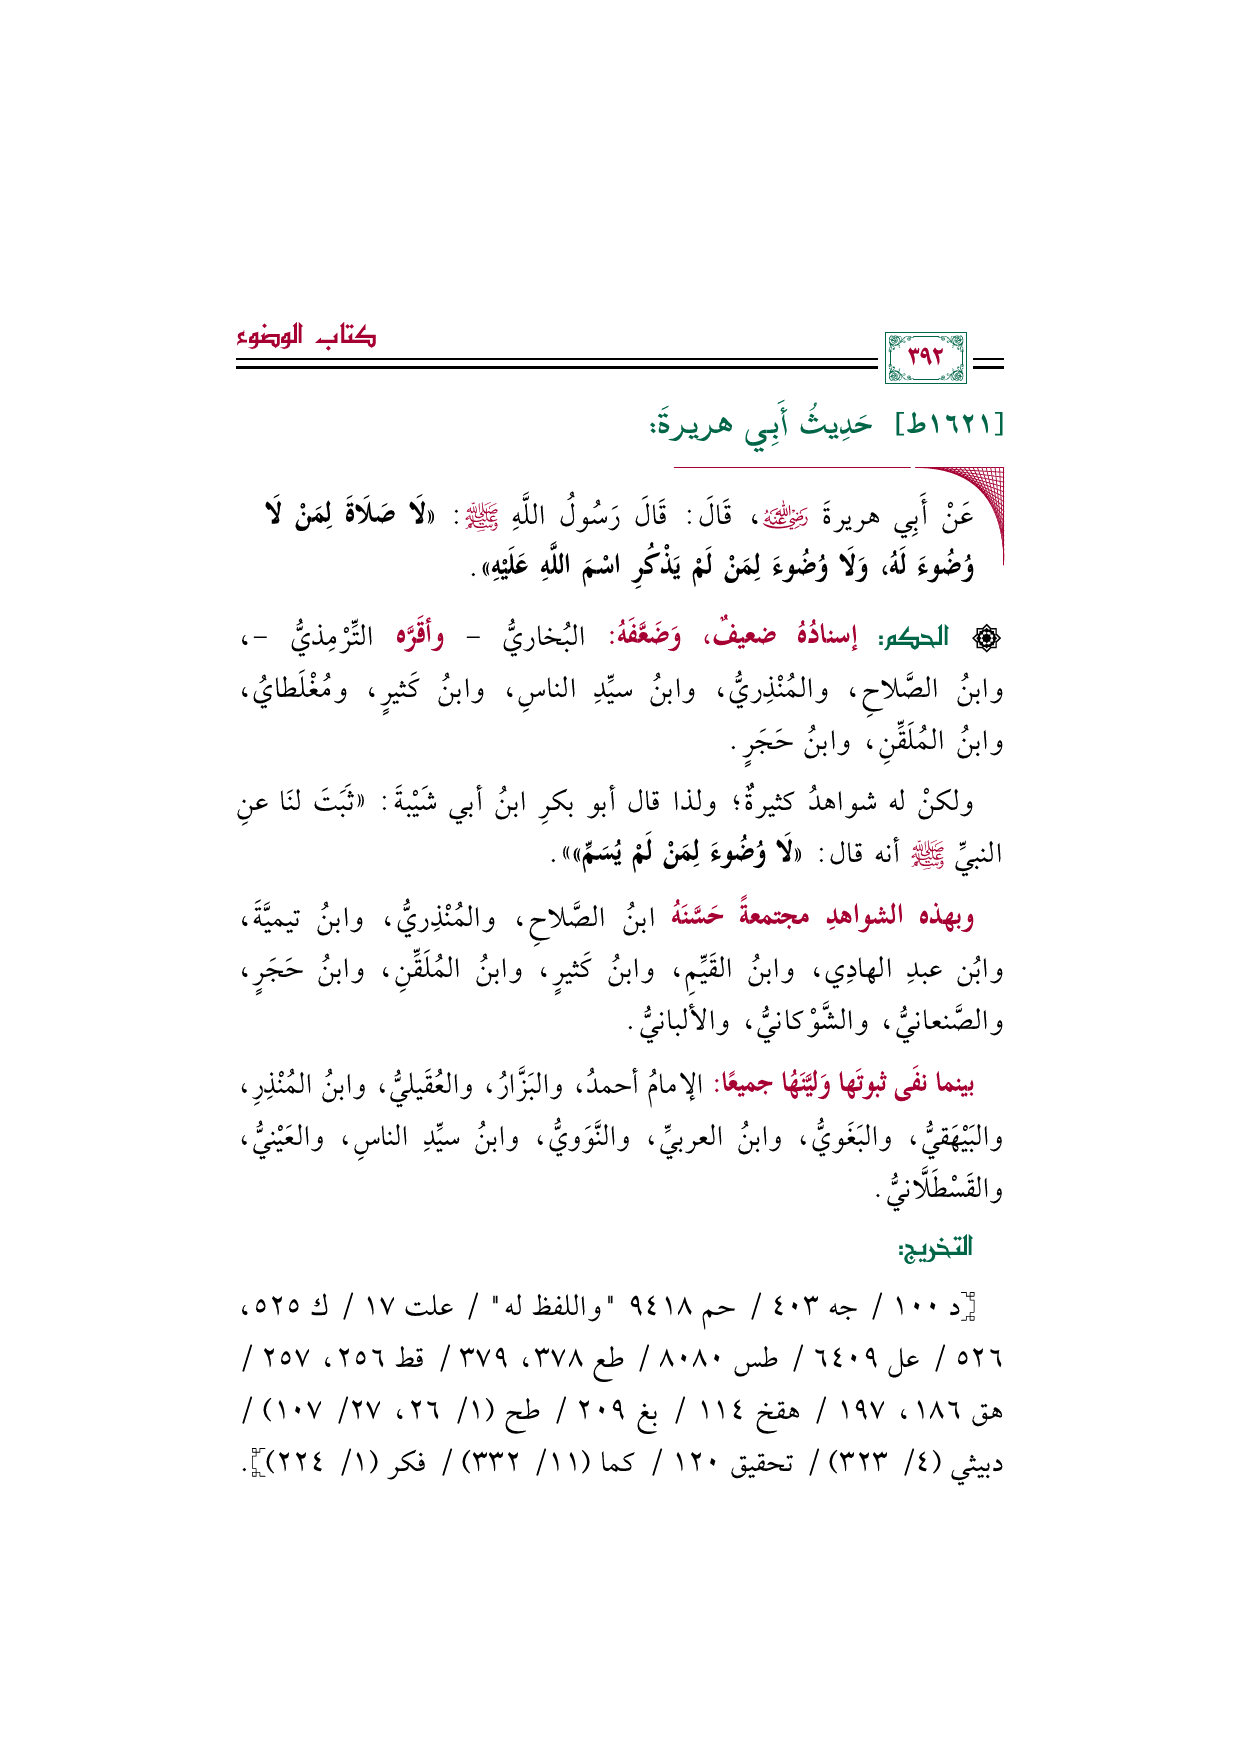 كتاب الوضوء
٣٩٢
[١٦٢١ط] حَدِيثُ أَبِي هريرةَ:
عَنْ أَبِي هريرةَ رَضِيَ اللَّهُ عَنْهُ، قَالَ: قَالَ رَسُولُ اللَّهِ ﷺ: «لَا صَلَاةَ لِمَنْ لَا
وُضُوءَ لَهُ، وَلَا وُضُوءَ لِمَنْ لَمْ يَذْكُرِ اسْمَ اللَّهِ عَلَيْهِ».
الحكم: إسنادُهُ ضعيفٌ، وَضَعَّفَهُ: البُخاريُّ - وأقَرَّه التِّرْمِذيُّ -،
وابنُ الصَّلاحِ، والمُنْذِريُّ، وابنُ سيِّدِ الناسِ، وابنُ كَثيرٍ، ومُغْلَطايُ،
وابنُ المُلَقِّنِ، وابنُ حَجَرٍ.
ولكنْ له شواهدُ كثيرةٌ؛ ولذا قال أبو بكرِ ابنُ أبي شَيْبةَ: «ثَبَتَ لنَا عنِ
النبيِّ ﷺ أنه قال: «لَا وُضُوءَ لِمَنْ لَمْ يُسَمِّ»».
وبهذه الشواهدِ مجتمعةً حَسَّنَهُ ابنُ الصَّلاحِ، والمُنْذِريُّ، وابنُ تيميَّةَ،
وابُن عبدِ الهادِي، وابنُ القَيِّمِ، وابنُ كَثيرٍ، وابنُ المُلَقِّنِ، وابنُ حَجَرٍ،
والصَّنعانيُّ، والشَّوْكانيُّ، والألبانيُّ.
بينما نفَى ثبوتَها وَليَّنَهُا جميعًا: الإمامُ أحمدُ، والبَزَّارُ، والعُقَيليُّ، وابنُ المُنْذِرِ،
والبَيْهَقيُّ، والبَغَويُّ، وابنُ العربيِّ، والنَّوَويُّ، وابنُ سيِّدِ الناسِ، والعَيْنيُّ،
والقَسْطَلَّانيُّ.
التخريج:
[د ١٠٠ / جه ٤٠٣ / حم ٩٤١٨ "واللفظ له" / علت ١٧ / ك ٥٢٥،
٥٢٦ / عل ٦٤٠٩ / طس ٨٠٨٠ / طع ٣٧٨، ٣٧٩ / قط ٢٥٦، ٢٥٧ /
هق ١٨٦، ١٩٧ / هقخ ١١٤ / بغ ٢٠٩ / طح (١/ ٢٦، ٢٧/ ١٠٧) /
دبيثي (٤/ ٣٢٣) / تحقيق ١٢٠ / كما (١١/ ٣٣٢) / فكر (١/ ٢٢٤)].